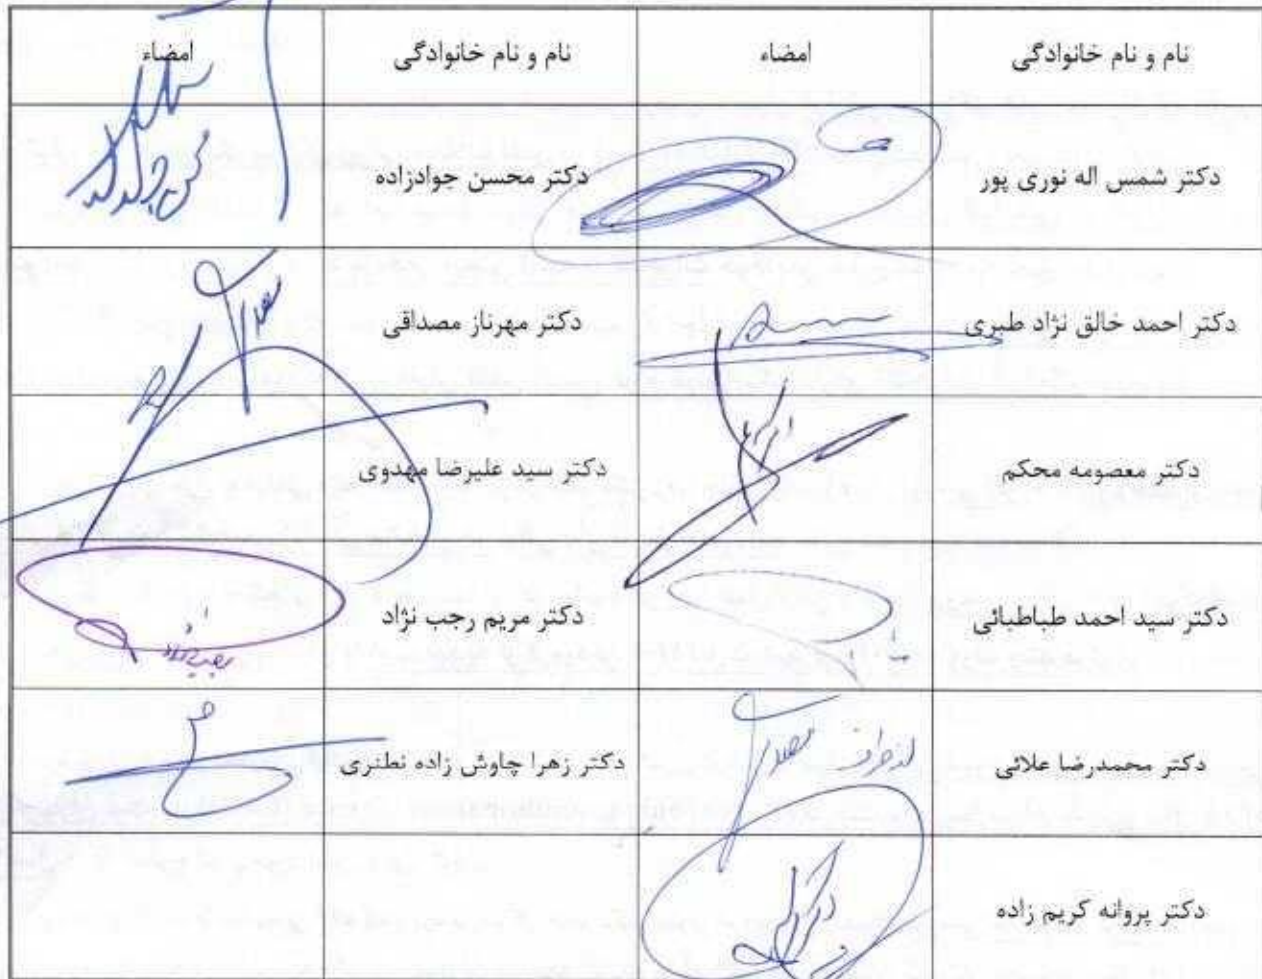 نام و نام خانوادگی امضاء نام و نام خانوادگی امضاء
دکتر شمس اله نوری پور دکتر محسن جوادزاده
دکتر احمد خالق نژاد طبری دکتر مهرناز مصداقی
دکتر معصومه محکم دکتر سید علیرضا مهدوی
دکتر سید احمد طباطبائی دکتر مریم رجب نژاد
دکتر محمدرضا علائی دکتر زهرا چاوش زاده نطنزی
دکتر پروانه کریم زاده